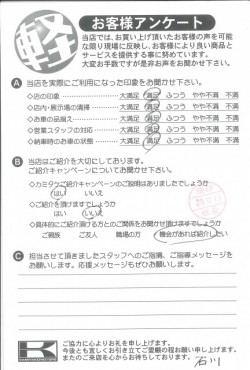 軽
お客様アンケート
当店では、お買い上げ頂いたお客様の声を可能
な限り現場に反映し、お客様により良い商品と
サービスを提供する事に努めています。
大変お手数ですが是非お声をお聞かせ下さい。
A 当店を実際にご利用になった印象をお聞かせ下さい。
◇店の印象 大満足 満足 ふつう やや不満 不満
◇店内・展示場の清掃 大満足 満足 ふつう やや不満 不満
◇お車の品揃え 大満足 満足 ふつう やや不満 不満
◇営業スタッフの対応 大満足 満足 ふつう やや不満 不満
◇納車時のお車の状態 大満足 満足 ふつう やや不満 不満
B 当店はご紹介を大切にしております。
ご紹介キャンペーンについてお聞かせ下さい。
◇カミタケご紹介キャンペーンのご説明はありましたでしょうか
はい いいえ
◇ご紹介を頂けますでしょうか
はい いいえ
◇具体的にご紹介頂ける方とのご関係をお聞かせ頂けますでしょうか
ご親族 ご友人 職場の方 機会があれば紹介したい
C 担当させて頂きましたスタッフへのご指摘、ご指導メッセージを
お願いします。応援メッセージもぜひお願いします。
ご協力に心よりお礼を申し上げます。
今後とも宜しくお引き立てご愛顧の程お願い申し上げます。
またのご来店を心からお待ちしております。
石川